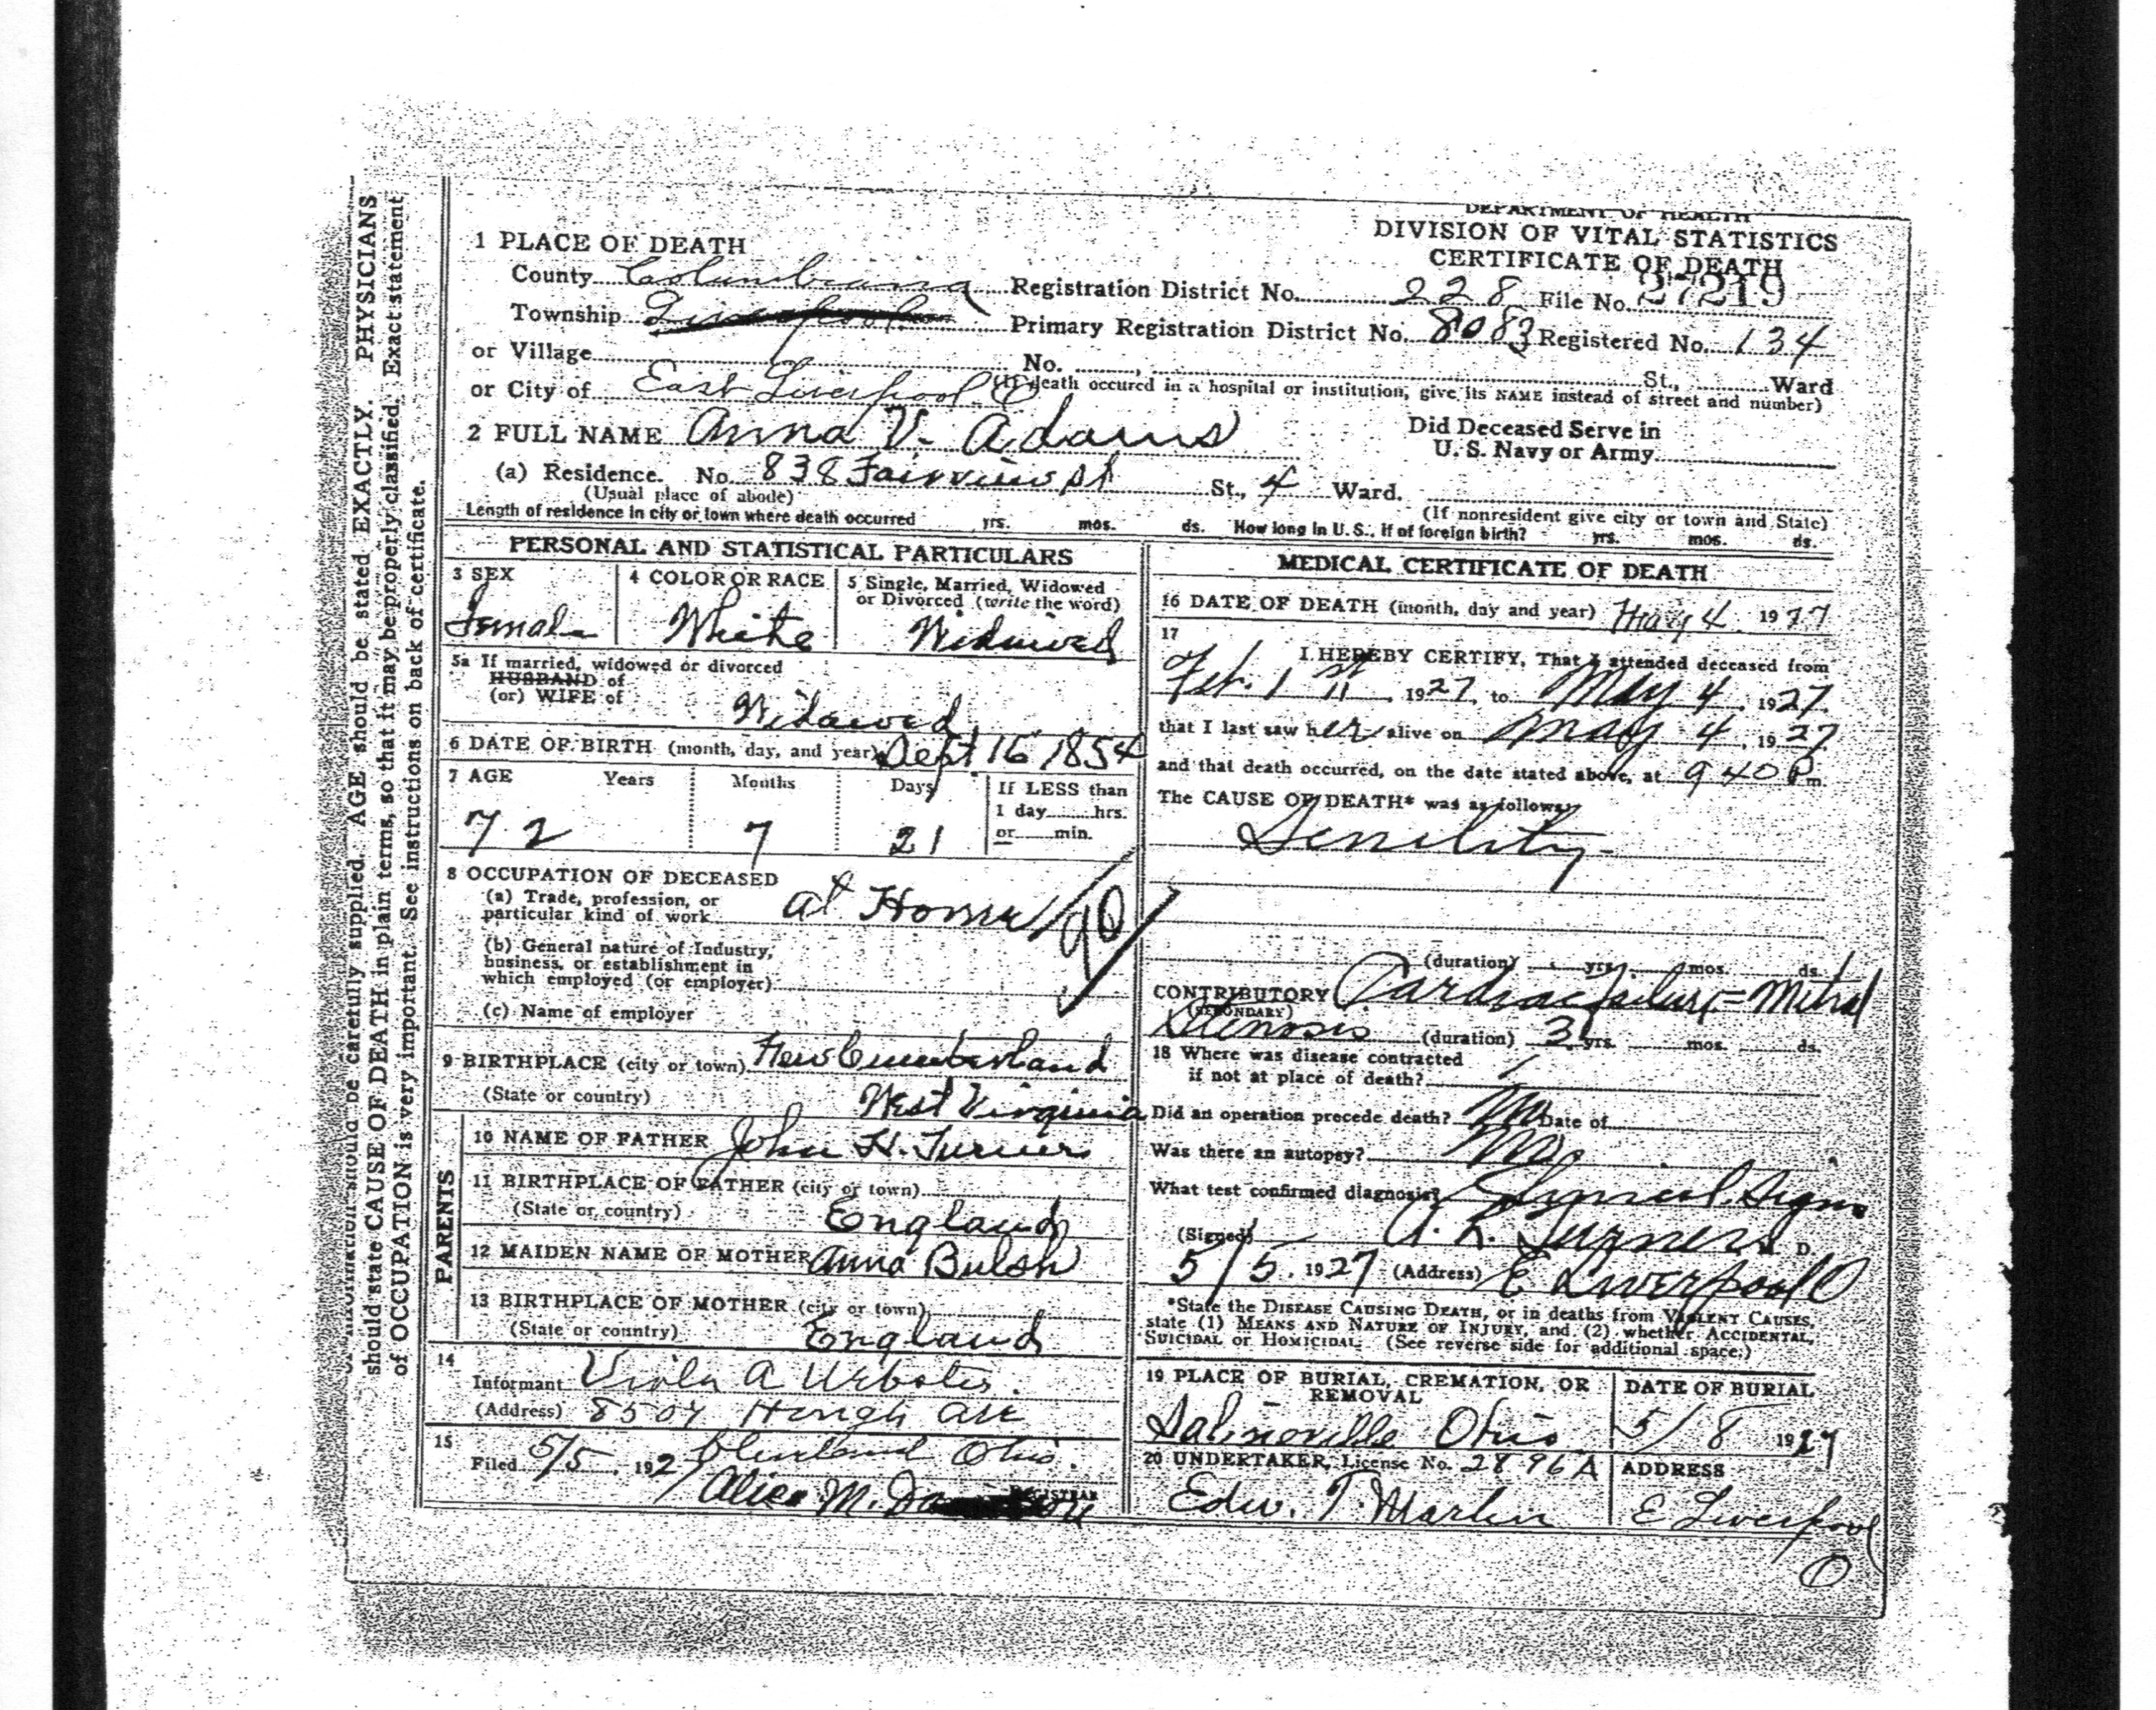 DEPARTMENT OF HEALTH
DIVISION OF VITAL STATISTICS
CERTIFICATE OF DEATH
1 PLACE OF DEATH
County Columbiana Registration District No. 228 File No. 27219
Township Liverpool Primary Registration District No. 8083 Registered No. 134
or Village No. , St., Ward
or City of East Liverpool O (If death occured in a hospital or institution, give its NAME instead of street and number)
2 FULL NAME Anna V. Adams Did Deceased Serve in U. S. Navy or Army
(a) Residence. No. 838 Fairview St St., 4 Ward.
(Usual place of abode) (If nonresident give city or town and State)
Length of residence in city or town where death occurred yrs. mos. ds. How long in U. S., if of foreign birth? yrs. mos. ds.
PERSONAL AND STATISTICAL PARTICULARS
3 SEX
Female
4 COLOR OR RACE
White
5 Single, Married, Widowed
or Divorced (write the word)
Widowed
5a If married, widowed or divorced
HUSBAND of
(or) WIFE of
Widowed
6 DATE OF BIRTH (month, day, and year) Sept 16 1854
7 AGE Years Months Days If LESS than
1 day hrs.
or min.
72 7 21
8 OCCUPATION OF DECEASED
(a) Trade, profession, or
particular kind of work at Home
(b) General nature of Industry,
business, or establishment in
which employed (or employer)
(c) Name of employer
9 BIRTHPLACE (city or town) New Cumberland
(State or country) West Virginia
PARENTS
10 NAME OF FATHER John H. Turner
11 BIRTHPLACE OF FATHER (city or town)
(State or country) England
12 MAIDEN NAME OF MOTHER Anna
13 BIRTHPLACE OF MOTHER (city or town)
(State or country) England
14
Informant Viola A Webster.
(Address) 8507 Hough Ave
Cleveland Ohio.
15
Filed 5/5, 192 Alice M.
REGISTRAR
MEDICAL CERTIFICATE OF DEATH
16 DATE OF DEATH (month, day and year) May 4 1927
17
I HEREBY CERTIFY, That I attended deceased from
Feb. 1st, 1927, to May 4, 1927.
that I last saw her alive on May 4, 1927
and that death occurred, on the date stated above, at 9 40 Pm.
The CAUSE OF DEATH* was as follows:
Senility
(duration) yrs. mos. ds.
CONTRIBUTORY Cardiac failure = Mitral
(SECONDARY)
Stenosis (duration) 3 yrs. mos. ds.
18 Where was disease contracted
if not at place of death?
Did an operation precede death? No Date of
Was there an autopsy? No
What test confirmed diagnosis? Signs
(Signed) A. L. Turner M. D.
5/5, 1927 (Address) E Liverpool O
*State the DISEASE CAUSING DEATH, or in deaths from VIOLENT CAUSES,
state (1) MEANS AND NATURE OF INJURY, and (2) whether ACCIDENTAL,
SUICIDAL or HOMICIDAL. (See reverse side for additional space.)
19 PLACE OF BURIAL, CREMATION, OR
REMOVAL
Salineville Ohio
DATE OF BURIAL
5/8 1927
20 UNDERTAKER, License No. 2896A
Edw. T. Martin
ADDRESS
E Liverpool
O
of information should be carefully supplied. AGE should be stated EXACTLY. PHYSICIANS
should state CAUSE OF DEATH in plain terms, so that it may be properly classified. Exact statement
of OCCUPATION is very important. See instructions on back of certificate.